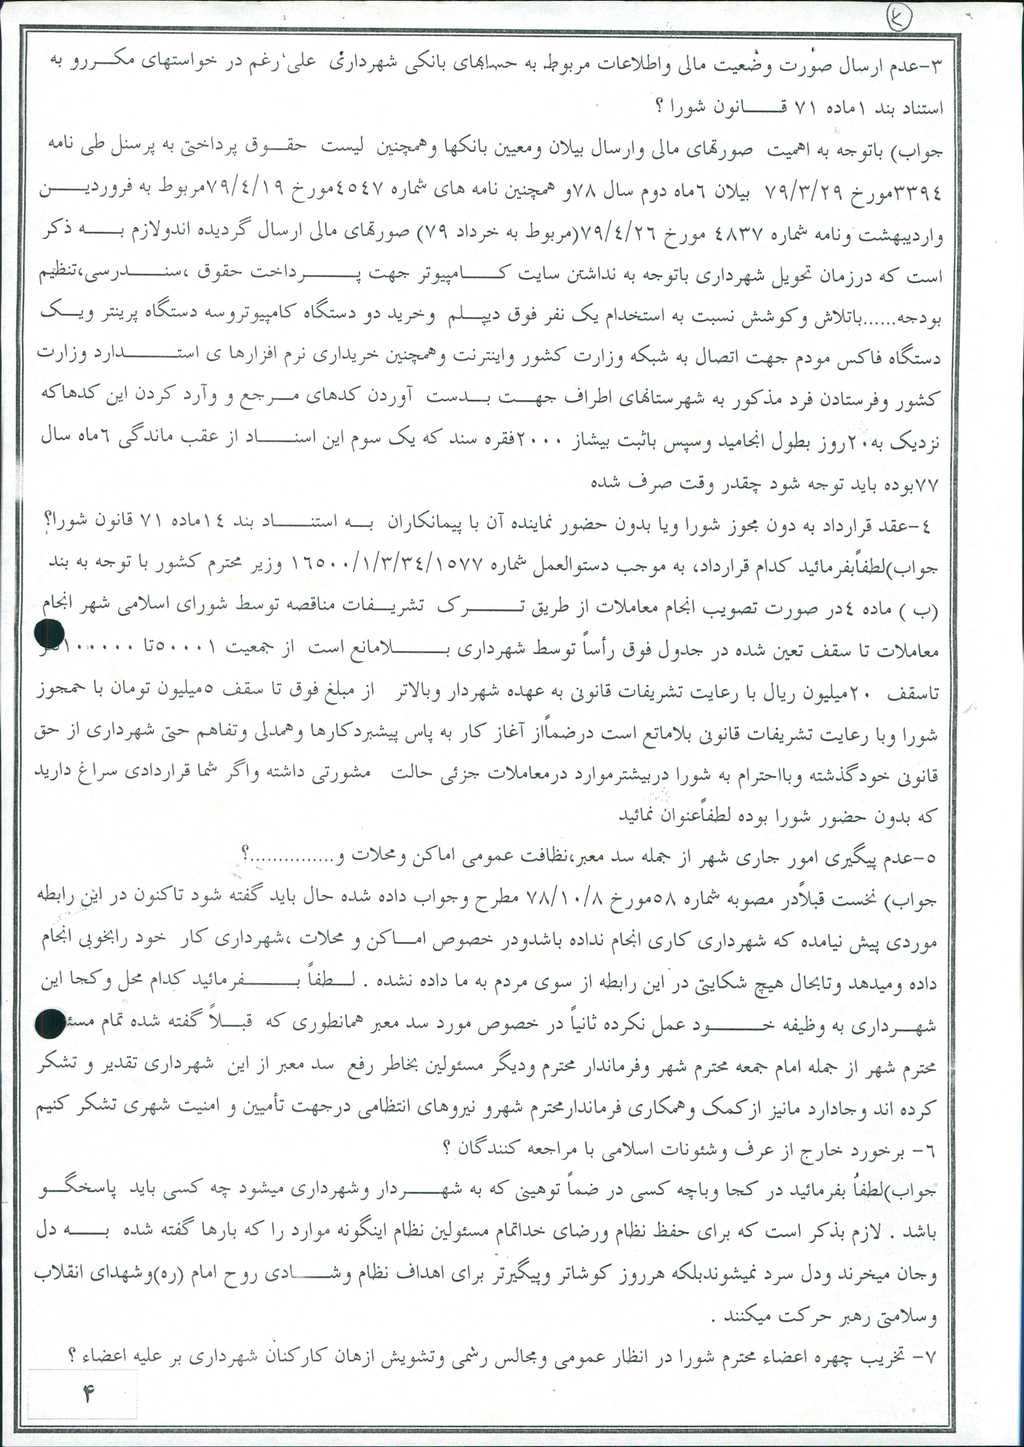 ۳-عدم ارسال صورت وضعیت مالی واطلاعات مربوط به حسابهای بانکی شهرداری علی رغم در خواستهای مکررو به
استناد بند ۱ماده ۷۱ قانون شورا ؟
جواب) باتوجه به اهمیت صورتهای مالی وارسال بیلان ومعیین بانکها وهمچنین لیست حقوق پرداختی به پرسنل طی نامه
۳۳۹۴مورخ ۷۹/۳/۲۹ بیلان ۶ماه دوم سال ۷۸و همچنین نامه های شماره ۴۵۴۷مورخ ۷۹/۴/۱۹مربوط به فروردین
واردیبهشت ونامه شماره ۴۸۳۷ مورخ ۷۹/۴/۲۶(مربوط به خرداد ۷۹) صورتهای مالی ارسال گردیده اندولازم به ذکر
است که درزمان تحویل شهرداری باتوجه به نداشتن سایت کامپیوتر جهت پرداخت حقوق ،سندرسی،تنظیم
بودجه......باتلاش وکوشش نسبت به استخدام یک نفر فوق دیپلم وخرید دو دستگاه کامپیوتروسه دستگاه پرینتر ویک
دستگاه فاکس مودم جهت اتصال به شبکه وزارت کشور واینترنت وهمچنین خریداری نرم افزارها ی استدارد وزارت
کشور وفرستادن فرد مذکور به شهرستانهای اطراف جهت بدست آوردن کدهای مرجع و وآرد کردن این کدهاکه
نزدیک به۲۰روز بطول انجامید وسپس باثبت بیشاز ۲۰۰۰فقره سند که یک سوم این اسناد از عقب ماندگی ۶ماه سال
۷۷بوده باید توجه شود چقدر وقت صرف شده
۴-عقد قرارداد به دون مجوز شورا ویا بدون حضور نماینده آن با پیمانکاران به استناد بند ۱۴ماده ۷۱ قانون شورا؟
جواب)لطفاًبفرمائید کدام قرارداد، به موجب دستوالعمل شماره ۱۶۵۰۰/۱/۳/۳۴/۱۵۷۷ وزیر محترم کشور با توجه به بند
(ب ) ماده ۴در صورت تصویب انجام معاملات از طریق ترک تشریفات مناقصه توسط شورای اسلامی شهر انجام
معاملات تا سقف تعین شده در جدول فوق رأساً توسط شهرداری بلامانع است از جمعیت ۵۰۰۰۱تا ۱۰۰۰۰۰
تاسقف ۲۰میلیون ریال با رعایت تشریفات قانونی به عهده شهردار وبالاتر از مبلغ فوق تا سقف ۵میلیون تومان با حمجوز
شورا وبا رعایت تشریفات قانونی بلاماتع است درضماًاز آغاز کار به پاس پیشبردکارها وهمدلی وتفاهم حتی شهرداری از حق
قانونی خودگذشته وبااحترام به شورا دربیشترموارد درمعاملات جزئی حالت مشورتی داشته واگر شما قراردادی سراغ دارید
که بدون حضور شورا بوده لطفاًعنوان نمائید
۵-عدم پیگیری امور جاری شهر از جمله سد معبر،نظافت عمومی اماکن ومحلات و...............؟
جواب) نخست قبلاًدر مصوبه شماره ۵۸مورخ ۷۸/۱۰/۸ مطرح وجواب داده شده حال باید گفته شود تاکنون در این رابطه
موردی پیش نیامده که شهرداری کاری انجام نداده باشدودر خصوص اماکن و محلات ،شهرداری کار خود رابخوبی انجام
داده ومیدهد وتابحال هیچ شکایتی در این رابطه از سوی مردم به ما داده نشده . لطفاً بفرمائید کدام محل وکجا این
شهرداری به وظیفه خود عمل نکرده ثانیاً در خصوص مورد سد معبر همانطوری که قبلاً گفته شده تمام
محترم شهر از جمله امام جمعه محترم شهر وفرماندار محترم ودیگر مسئولین بخاطر رفع سد معبر از این شهرداری تقدیر و تشکر
کرده اند وجادارد مانیز ازکمک وهمکاری فرماندارمحترم شهرو نیروهای انتظامی درجهت تأمیین و امنیت شهری تشکر کنیم
۶- برخورد خارج از عرف وشئونات اسلامی با مراجعه کنندگان ؟
جواب)لطفاُ بفرمائید در کجا وباچه کسی در ضماً توهینی که به شهردار وشهرداری میشود چه کسی باید پاسخگو
باشد . لازم بذکر است که برای حفظ نظام ورضای خداتمام مسئولین نظام اینگونه موارد را که بارها گفته شده به دل
وجان میخرند ودل سرد نمیشوندبلکه هرروز کوشاتر وپیگیرتر برای اهداف نظام وشادی روح امام (ره)وشهدای انقلاب
وسلامتی رهبر حرکت میکنند .
۷- تخریب چهره اعضاء محترم شورا در انظار عمومی ومجالس رشمی وتشویش ازهان کارکنان شهرداری بر علیه اعضاء ؟
۴